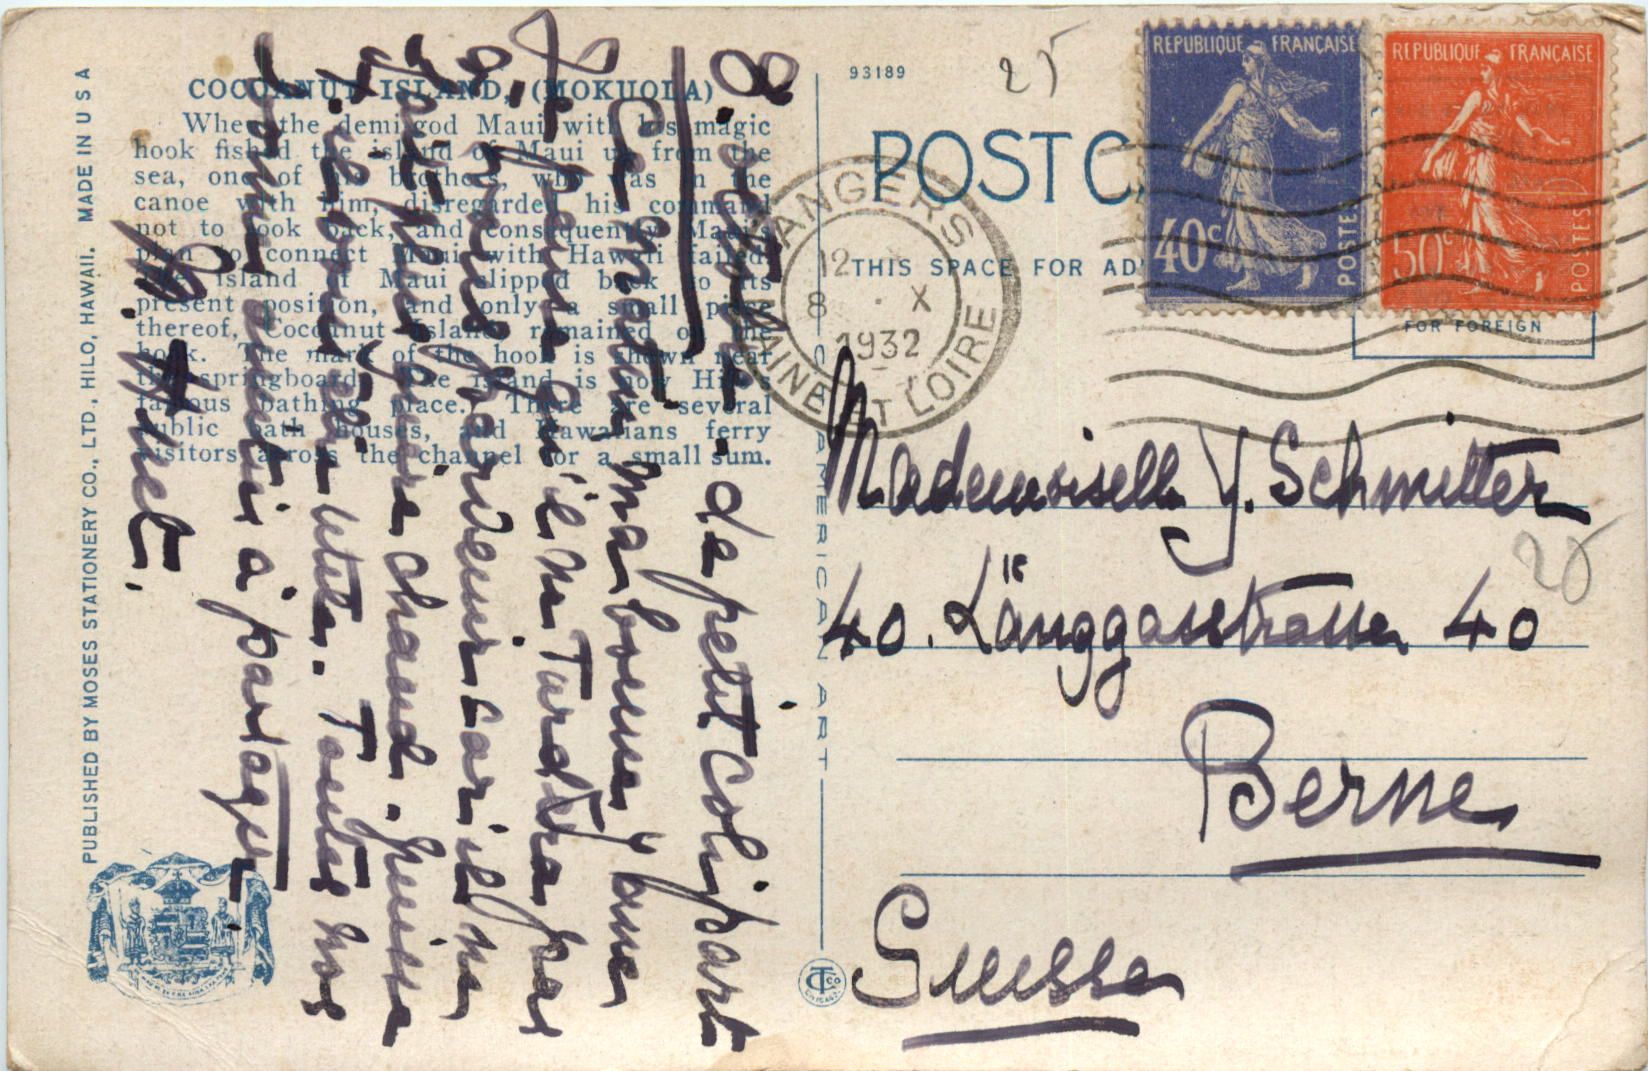 COCOANUT ISLAND, (MOKUOLA)
When the demi god Maui with his magic
hook fished the island of Maui up from the
sea, one of his brothers, who was in the
canoe with him, disregarded his command
not to look back, and consequently Maui's
plan to connect Maui with Hawaii failed.
The island of Maui slipped back to its
present position, and only a small piece
thereof, Cocoanut Island remained on the
hook. The mark of the hook is shown near
the springboard. The island is now Hilo's
famous bathing place. There are several
public bath houses, and Hawaiians ferry
visitors across the channel for a small sum.
PUBLISHED BY MOSES STATIONERY CO., LTD., HILO, HAWAII. MADE IN U S A
8. octobre. de petit colis part
Ce matin, ma bonne Yanne
Je pense qu'il ne tardera pas
à vous parvenir car il ne
fait plus guère chaud. puisse
il être utile. Toutes nos
à partager
93189
25
POST C
THIS SPACE FOR AD
C.T. AMERICAN ART
REPUBLIQUE FRANÇAISE
40c
POSTES
REPUBLIQUE FRANÇAISE
50c
POSTES
FOR FOREIGN
ANGERS
12
8 . X
1932
MAINE ET LOIRE
Mademoiselle Y. Schmitter
25
40. Länggassstrasse 40
Berne
Suisse
CT Co
CHICAGO